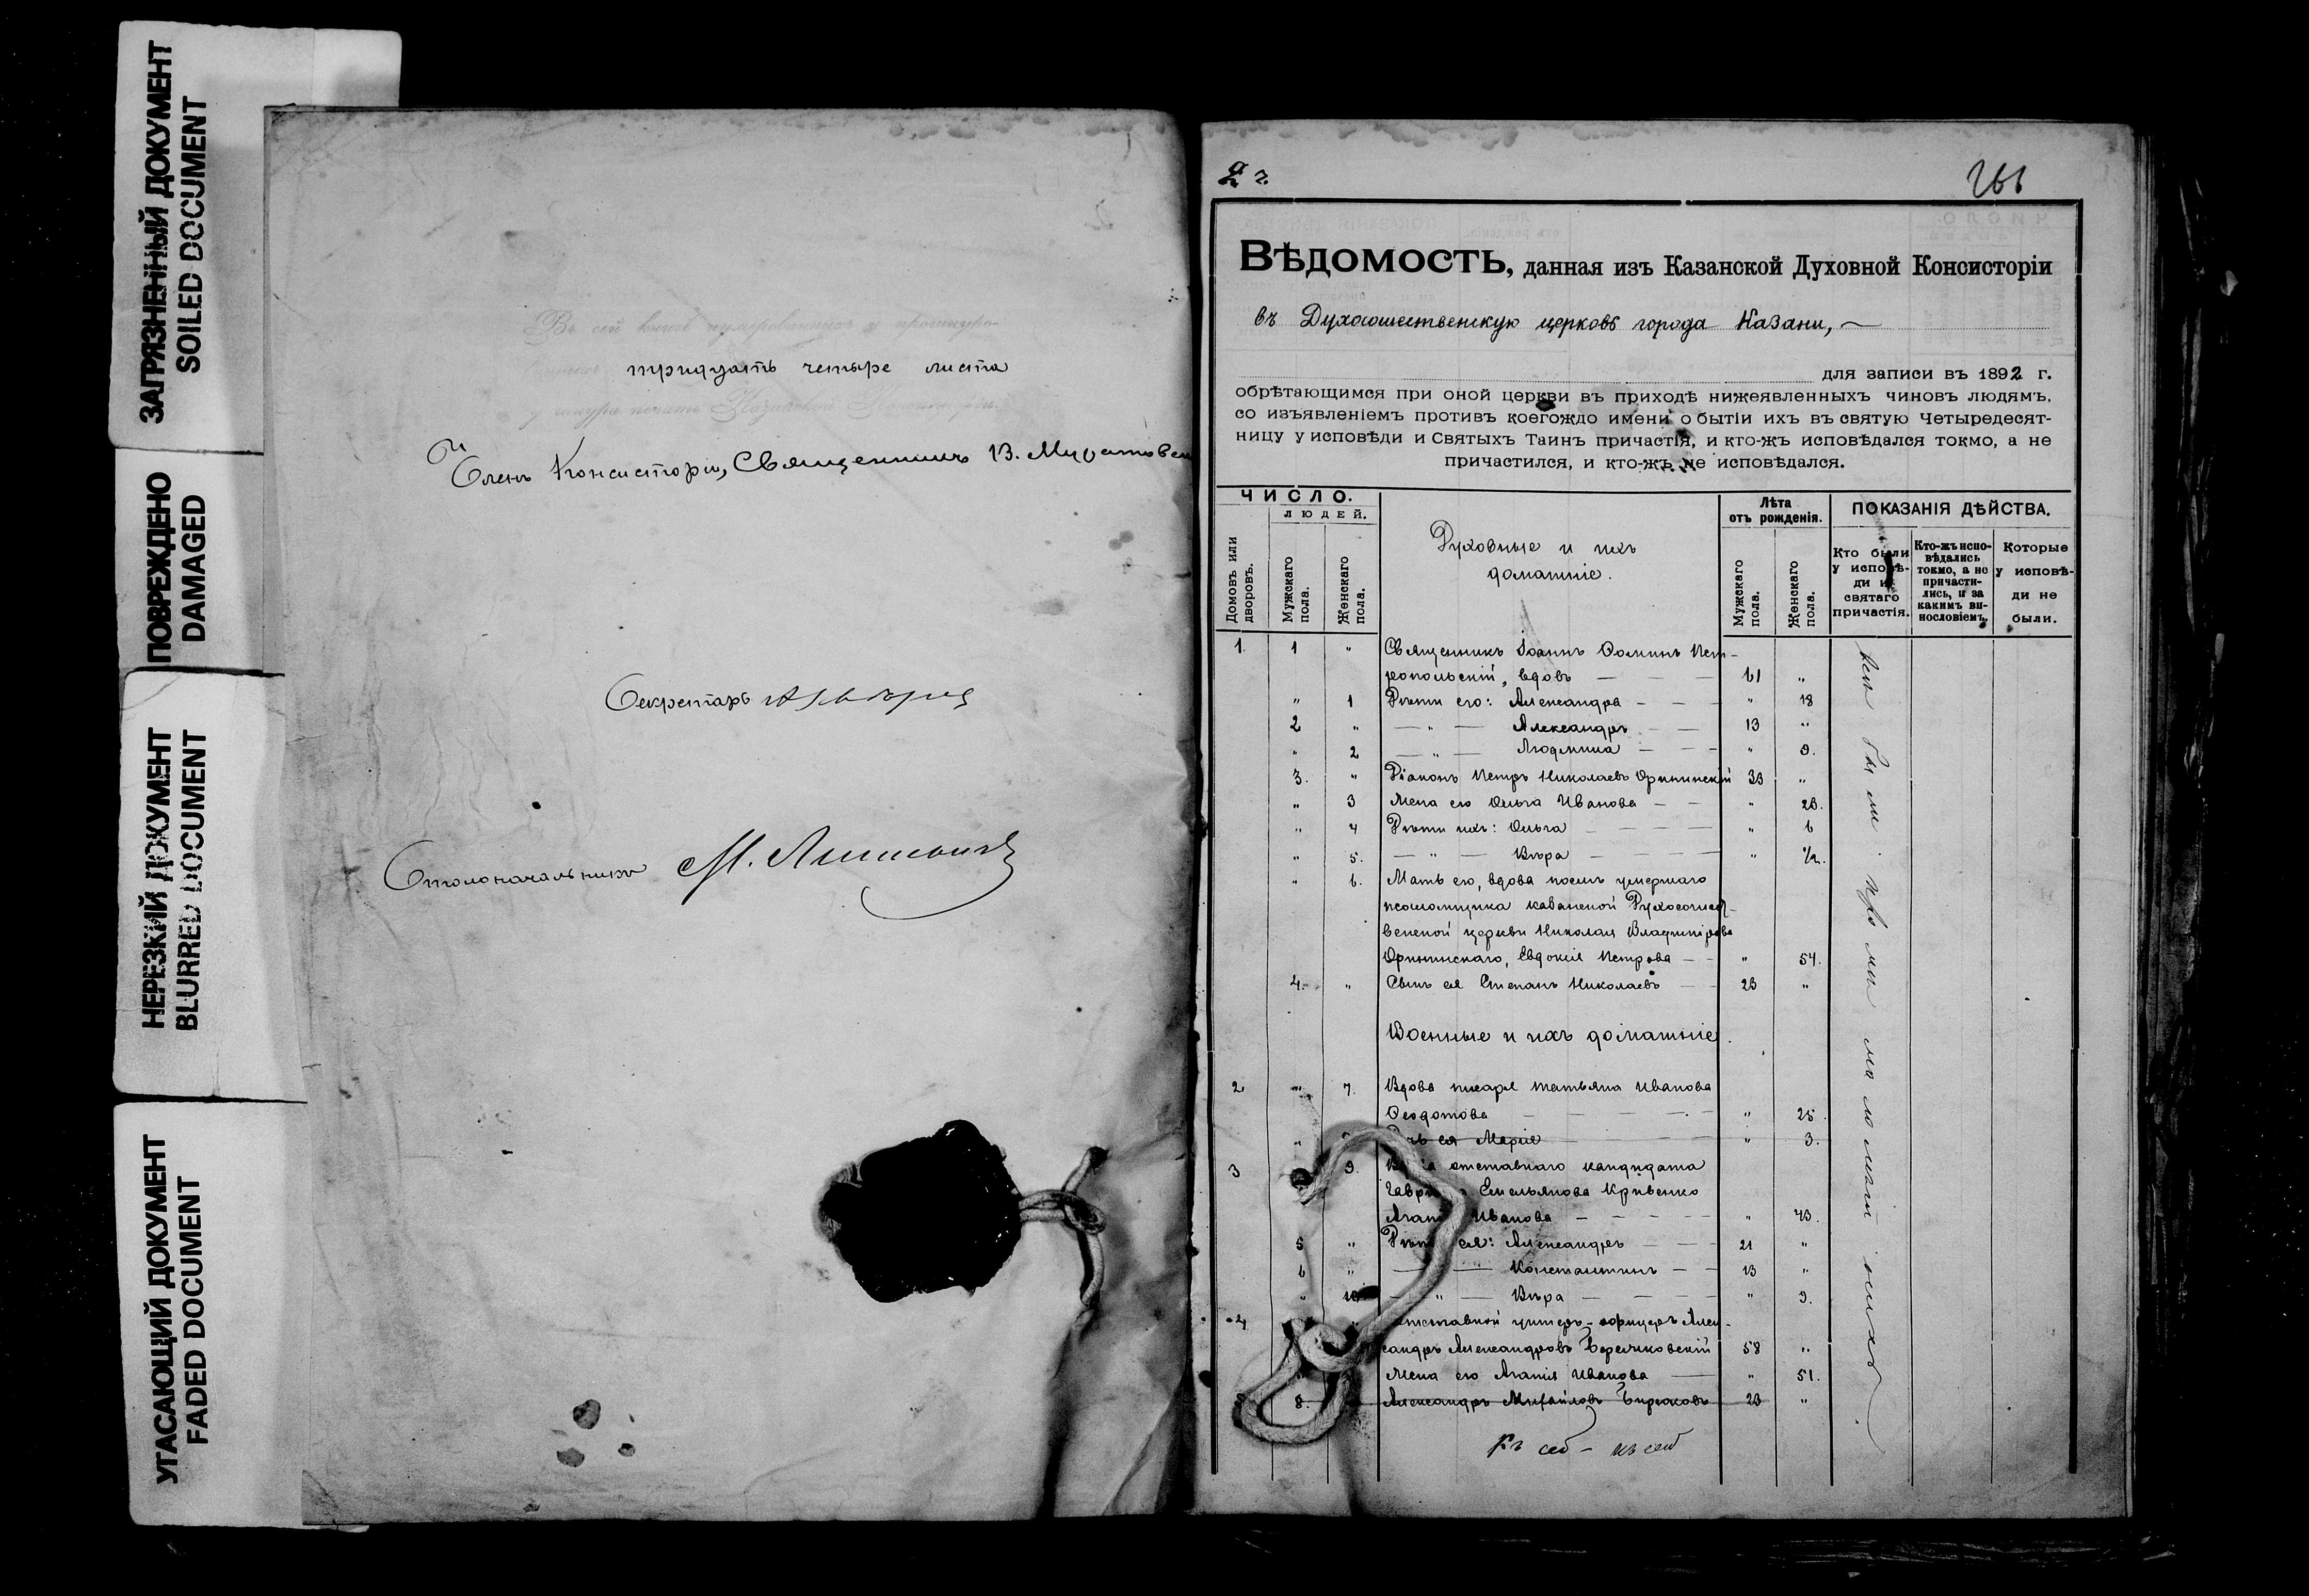 ЗАГРЯЗНЕННЫЙ ДОКУМЕНТ
SOILED DOCUMENT
ПОВРЕЖДЕНО
DAMAGED
НЕРЕЗКИЙ ДОКУМЕНТ
BLURRED DOCUMENT
УГАСАЮЩИЙ ДОКУМЕНТ
FADED DOCUMENT
Въ сей книгѣ нумерованныхъ и прошнуро-
тридцать четыре листа
у шнура печать Казанской Консисторіи.
Членъ Консисторіи, Священникъ В.
Секретарь
Столоначальникъ М.
2
261
ВѢДОМОСТЬ, данная изъ Казанской Духовной Консисторіи
въ Духосошественскую церковь города Казани,
для записи въ 1892 г.
обрѣтающимся при оной церкви въ приходѣ нижеявленныхъ чиновъ людямъ,
со изъявленіемъ противъ коегождо имени о бытіи ихъ въ святую Четыредесят-
ницу у исповѣди и Святыхъ Таинъ причастія, и кто-жъ исповѣдался токмо, а не
причастился, и кто-жъ не исповѣдался.
ЧИСЛО.
людей.
Домовъ или дворовъ.
Мужскаго пола.
Женскаго пола.
Духовные и ихъ
домашніе.
Лѣта
отъ рожденія.
Мужскаго пола.
Женскаго пола.
ПОКАЗАНІЯ ДѢЙСТВА.
Кто были у исповѣ-ди и святаго причастія.
Кто-жъ испо-вѣдались токмо, а не причасти-лись, и за какимъ ви-нословіемъ.
Которые у исповѣ-ди не были.
1. 1 " Священникъ Іоаннъ Ѳоминъ Пет-
ропольскій, вдовъ — — — 61 "
" 1 Дѣти его: Александра — — — " 18
2 " — " — Александръ — — 13 "
" 2 — " — Людмила — — — " 9.
3. " Діаконъ Петръ Николаевъ Орининскій 33 "
" 3 Жена его Ольга Иванова — — " 28.
" 4 Дѣти ихъ: Ольга — — — — " 6
" 5. — " — Вѣра — — — — " 1/2.
" 6. Мать его, вдова послѣ умершаго
псаломщика казанской Духосошест-
венской церкви Николая Владимірова
Орининскаго, Евдокія Петрова — — " 54.
4. " Сынъ ея Степанъ Николаевъ — — 23 "
Военные и ихъ домашніе.
2. " 7. Вдова писаря Татьяна Иванова
Ѳеодотова — — — — — " 25.
" Дочь ея Марія — — — — " 3.
3 9. отставнаго кандидата
Емельянова Кривенко
Иванова — — — — — " 43.
5 " Дѣти ея: Александръ — — — 21 "
6 " — — Константинъ — — 13 "
" 10 — " — Вѣра — — — — " 9.
4 Отставной унтеръ-офицеръ Алек-
сандръ Александровъ 58 "
Жена его Агапія Иванова — " 51.
8. Александръ Михайловъ Бирюковъ 23 "